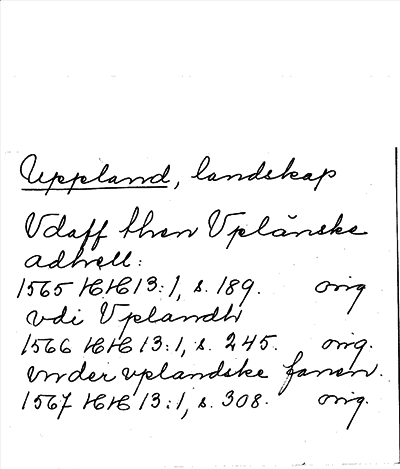 Uppland, landskap
Vdaff then Vplånske
adhell:
1565 HH 13:1, s. 189. orig
vdi Vplandh
1566 HH 13:1, s. 245. orig.
vnder vplandske fanen.
1567 HH 13:1, s. 308. orig.